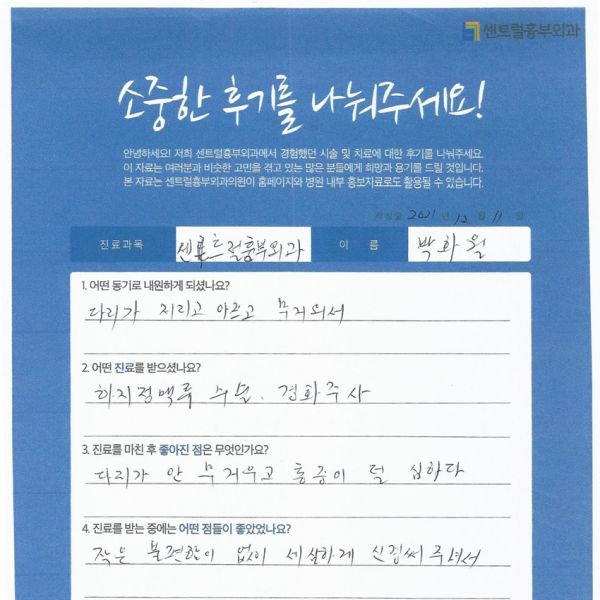 센트럴흉부외과
소중한 후기를 나눠주세요!
안녕하세요! 저희 센트럴흉부외과에서 경험했던 시술 및 치료에 대한 후기를 나눠주세요.
이 자료는 여러분과 비슷한 고민을 겪고 있는 많은 분들에게 희망과 용기를 드릴 것입니다.
본 자료는 센트럴흉부외과의원이 홈페이지와 병원 내부 홍보자료로도 활용될 수 있습니다.
작성일 2021 년 12 월 11 일
진료과목 센트럴흉부외과 이 름 박화월
1. 어떤 동기로 내원하게 되셨나요?
다리가 저리고 아프고 무거워서
2. 어떤 진료를 받으셨나요?
하지정맥류 수술. 경화주사
3. 진료를 마친 후 좋아진 점은 무엇인가요?
다리가 안 무거우고 통증이 덜 심하다
4. 진료를 받는 중에는 어떤 점들이 좋았었나요?
작은 불편함이 없이 세심하게 신경써주셔서